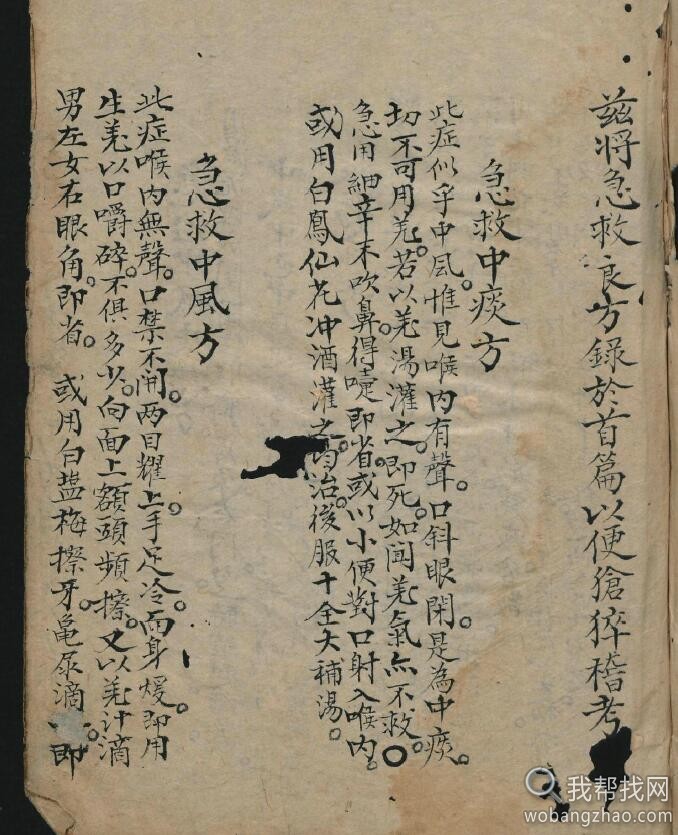 茲將急救良方錄於首篇以便猝稽考
急救中痰方
此症似乎中風。惟見喉內有聲。口斜眼閉。是為中痰。
切不可用羗。若以羗湯灌之。即死。如聞羗氣亦不救。
急用細辛末吹鼻。得嚏即省。或以小便對口射入喉內。
或用白鳳仙花冲酒灌之。均治。後服十全大補湯。
急救中風方
此症喉內無聲。口禁不開。兩目耀上。手足冷。而身煖。即用
生羗以口嚼碎。不俱多少。向面上額頭頻擦。又以羗汁滴
男左女右眼角。即省。或用白盐梅擦牙。龜尿滴即
我帮找网
wobangzhao.com